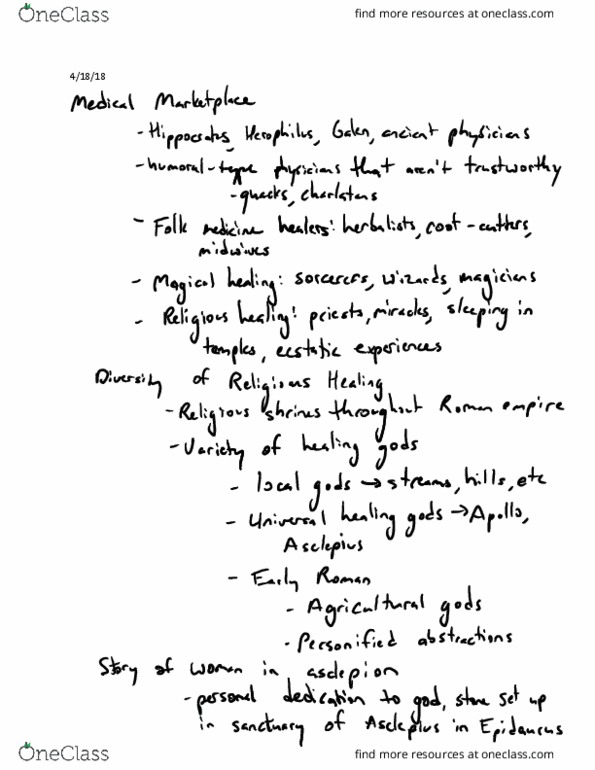 OneClass
find more resources at oneclass.com
4/18/18
Medical Marketplace
- Hippocrates, Herophilus, Galen, ancient physicians
- humoral-type physicians that aren't trustworthy
- quacks, charlatans
- Folk medicine healers: herbalists, root-cutters,
midwives
- Magical healing: sorcerers, wizards, magicians
- Religious healing: priests, miracles, sleeping in
temples, ecstatic experiences
Diversity of Religious Healing
- Religious shrines throughout Roman empire
- Variety of healing gods
- local gods → streams, hills, etc
- Universal healing gods → Apollo,
Asclepius
- Early Roman
- Agricultural gods
- Personified abstractions
Story of woman in asclepion
- personal dedication to god, stone set up
in sanctuary of Asclepius in Epidaurus
OneClass
find more resources at oneclass.com